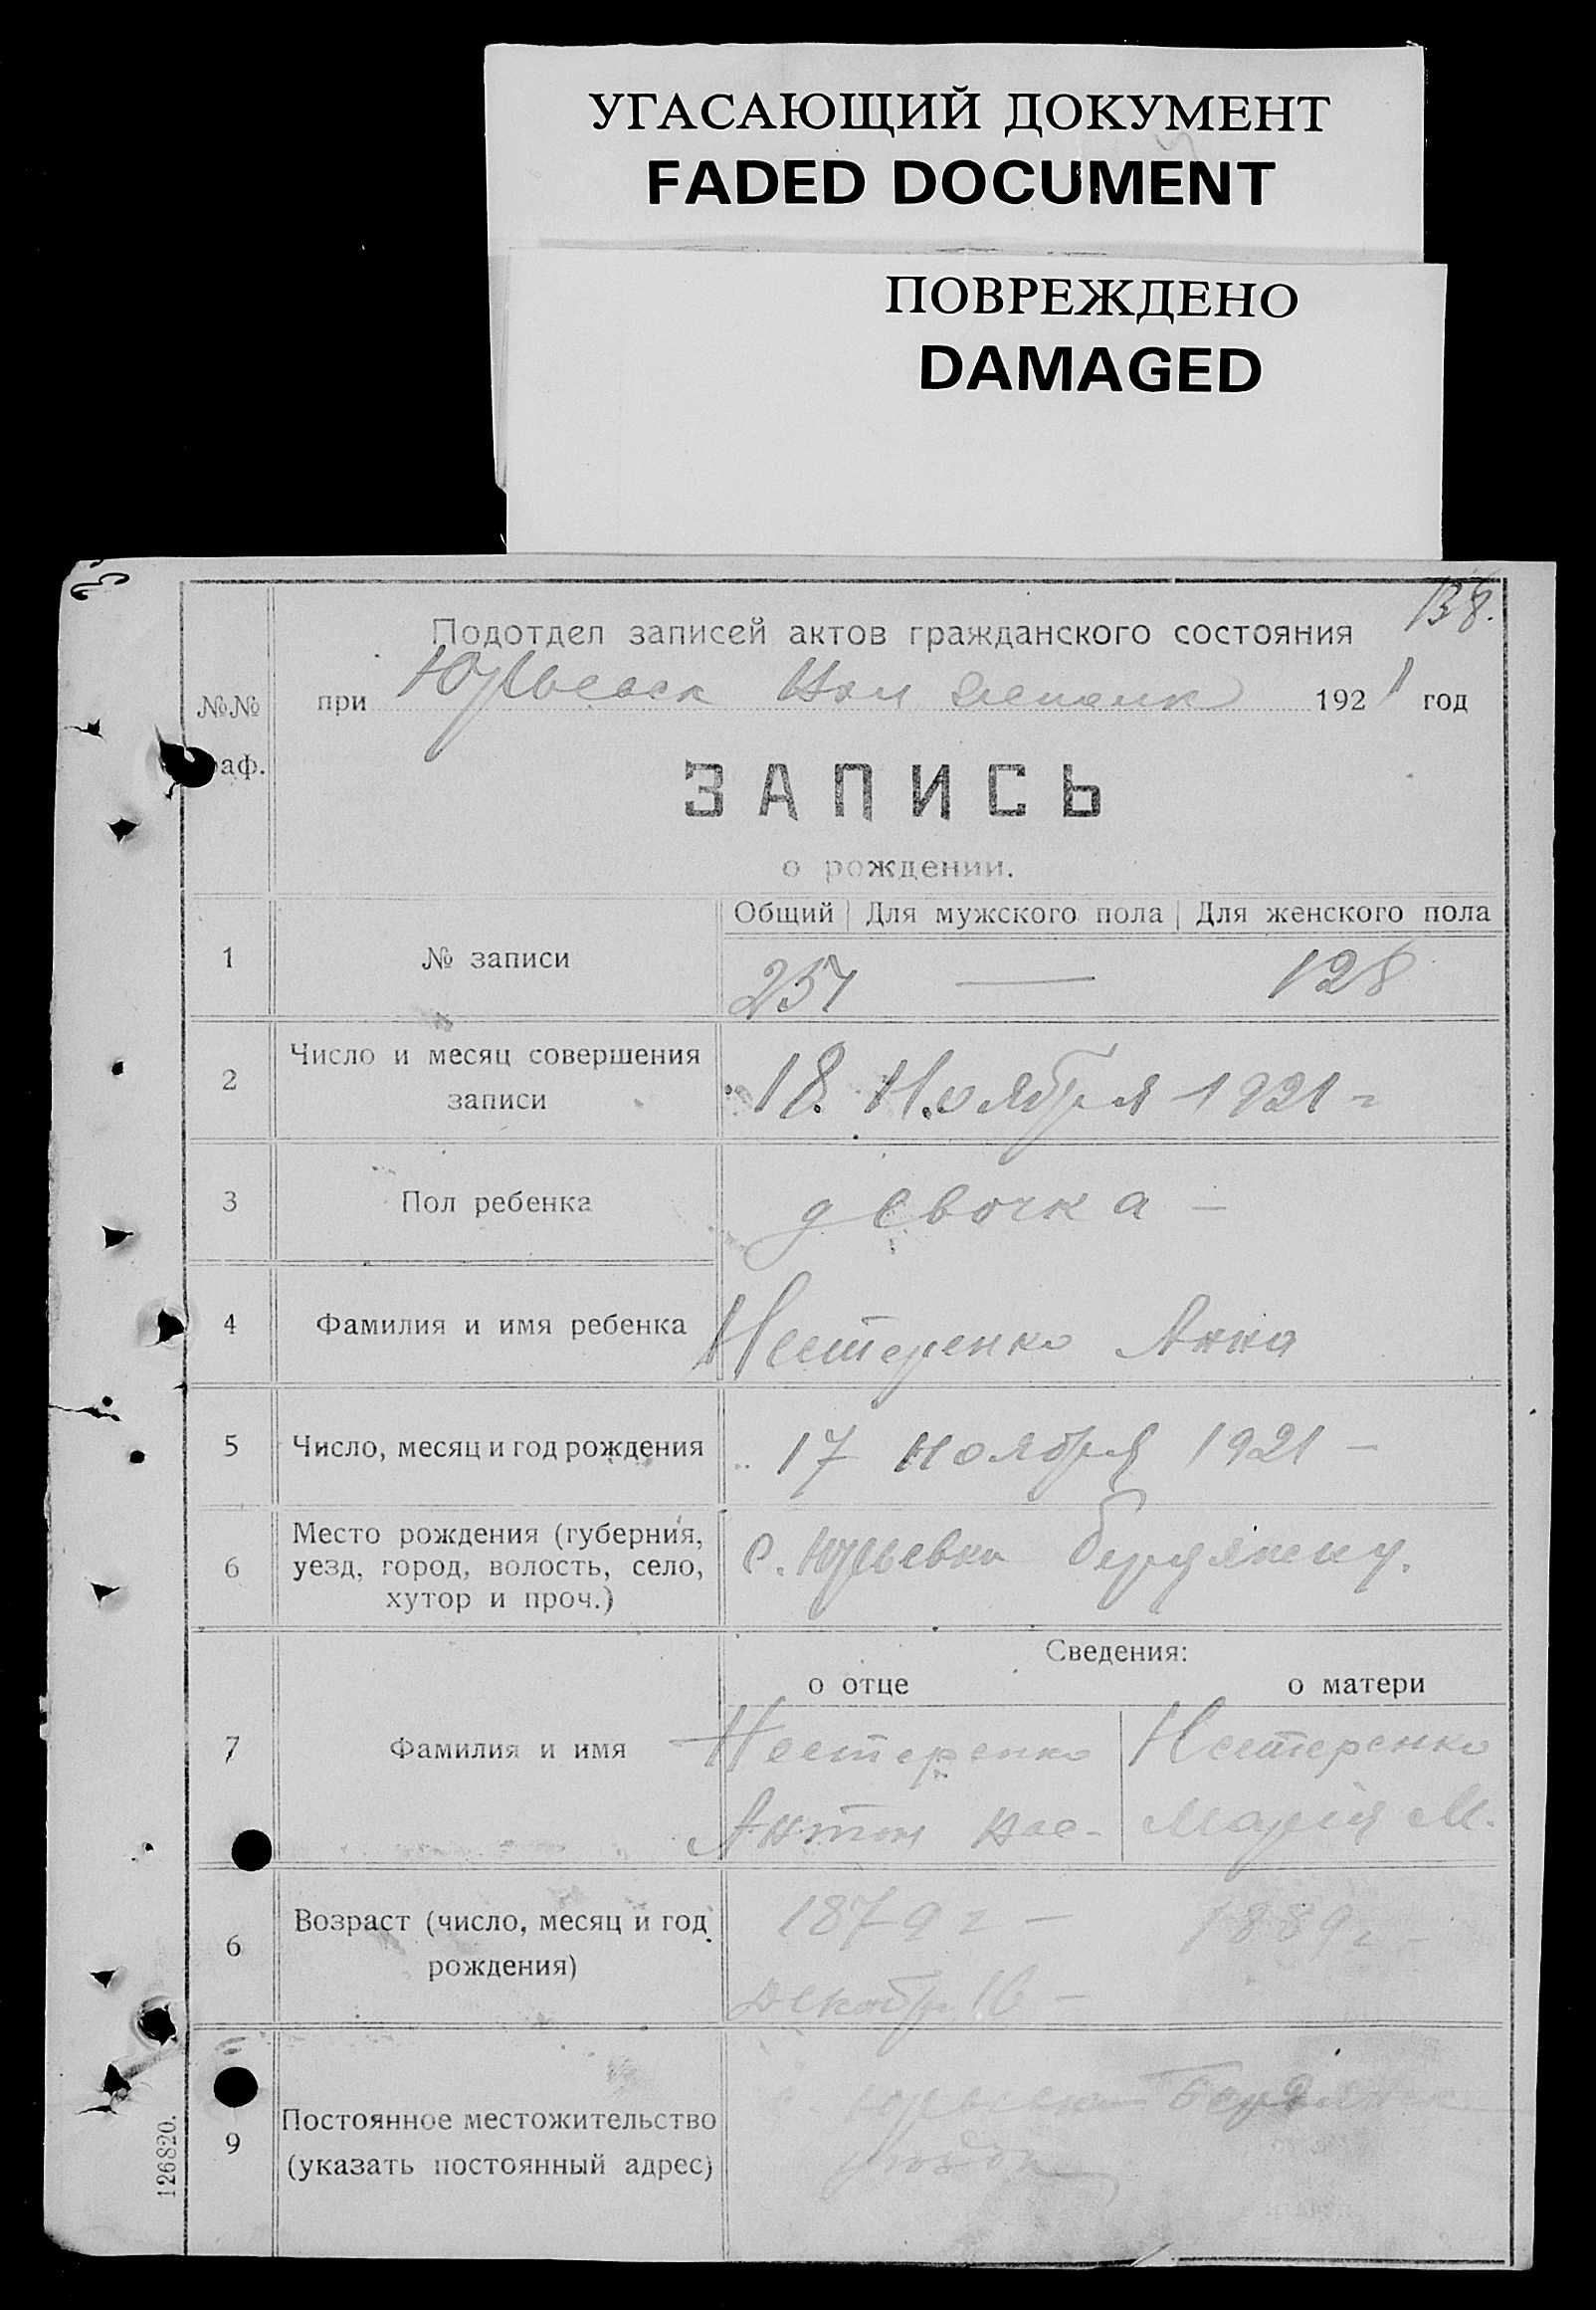 УГАСАЮЩИЙ ДОКУМЕНТ
FADED DOCUMENT
ПОВРЕЖДЕНО
DAMAGED
138.
Подотдел записей актов гражданского состояния
№№ при Юрьевск 1921 год
аф.
ЗАПИСЬ
о рождении.
Общий Для мужского пола Для женского пола
1 № записи 254 — 128
2 Число и месяц совершения
записи 18. Ноября 1921 г
3 Пол ребенка девочка —
4 Фамилия и имя ребенка Нестеренко Анна
5 Число, месяц и год рождения 17 ноября 1921 —
6 Место рождения (губерния,
уезд, город, волость, село,
хутор и проч.) с. Юрьевка
Сведения:
о отце о матери
7 Фамилия и имя Нестеренко Нестеренко
Антон Вас- Мария М.
6 Возраст (число, месяц и год
рождения) 1879 г — 1889 г —
Декабр 16 —
9 Постоянное местожительство
(указать постоянный адрес)
126820.